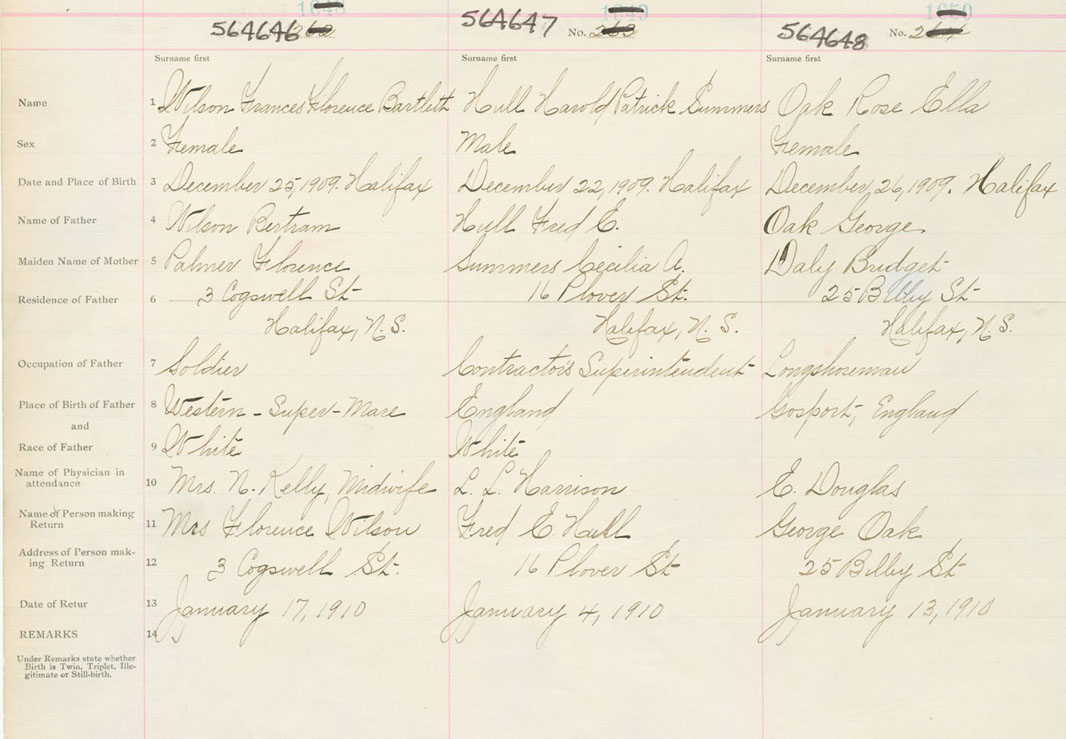 1648 1649 1650
564646 262 564647 No. 263 564648 No. 264
Surname first Surname first Surname first
Name 1 Wilson Frances Florence Bartlett Hull Harold Patrick Summers Oak Rose Ella
Sex 2 Female Male Female
Date and Place of Birth 3 December 25, 1909. Halifax December 22, 1909. Halifax December, 26, 1909. Halifax
Name of Father 4 Wilson Bertram Hull Fred E. Oak George
Maiden Name of Mother 5 Palmer Florence Summers Cecilia A. Daly Bridget
Residence of Father 6 3 Cogswell St 16 Plover St. 25 Bilby St
Halifax, N.S. Halifax, N.S. Halifax, N.S.
Occupation of Father 7 Soldier Contractor's Superintendent Longshoreman
Place of Birth of Father 8 Western-Super-Mare England Gosport, England
and
Race of Father 9 White White
Name of Physician in
attendance 10 Mrs. N. Kelly, Midwife L. L. Harrison E. Douglas
Name of Person making
Return 11 Mrs Florence Wilson Fred E Hull George Oak
Address of Person mak-
ing Return 12 3 Cogswell St. 16 Plover St 25 Bilby St
Date of Retur 13 January 17, 1910 January 4, 1910 January 13, 1910
REMARKS 14
Under Remarks state whether
Birth is Twin, Triplet, Ille-
gitimate or Still-birth.